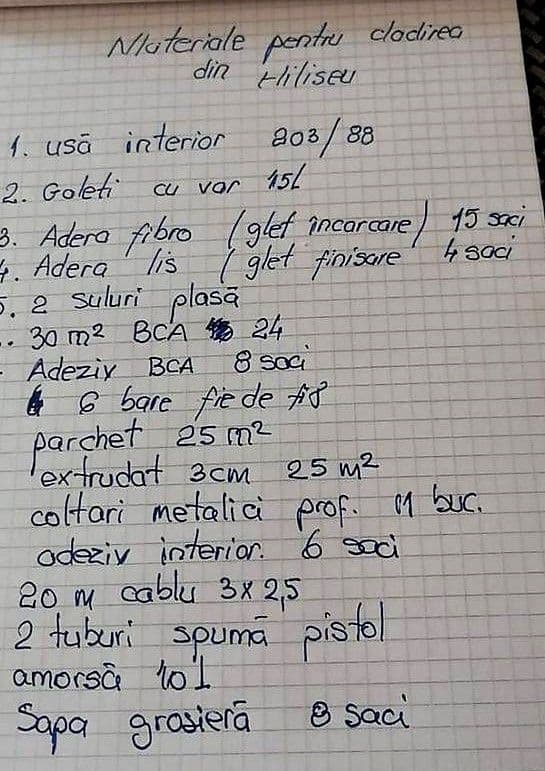 Materiale pentru cladirea
din Hiliseu
1. usă interior 203/88
2. Goleti cu var 15L
3. Adera fibro (glet încarcare) 15 saci
4. Adera lis (glet finisare 4 saci
5. 2 suluri plasă
. 30 m² BCA 24
- Adeziv BCA 8 saci
6 bare fie de fi 8
parchet 25 m²
extrudat 3cm 25 m²
coltari metalici prof. 11 buc.
adeziv interior. 6 saci
20 m cablu 3x2,5
2 tuburi spumă pistol
amorsă 10 L
Sapa grosieră 8 saci